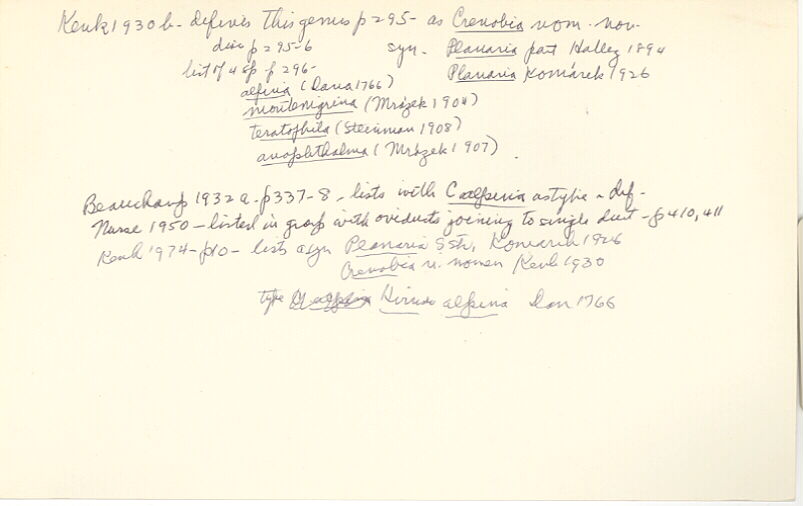 Kenk 1930 b - defines this genus p 295 - as Crenobia nom. nov.
disc p 295-6 syn - Planaria part Hallez 1894
list of 4 sp p 296 - Planaria Komárek 1926
alpina (Dana 1766)
montenigrina (Mrázek 1904)
teratophila (Steinman 1908)
anophthalma (Mrázek 1907)
Beauchamp 1932 a - p 337-8 - lists with C alpina as type - def -
Nurse 1950 - listed in group with oviducts joining to single duct - p 410, 411
Kenk 1974 - p 10 - lists as syn Planaria S str, Komárek 1926
Crenobia n. nomen Kenk 1930
type Hirudo alpina Dan 1766